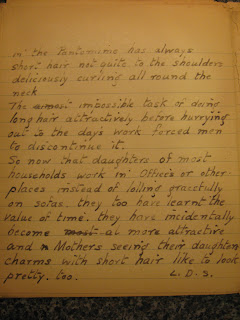 in the Pantomime has always
short hair not quite to the shoulders
deliciously curling all round the
neck
The almost impossible task of doing
long hair attractively before hurrying
out to the day's work forced men
to discontinue it.
So now that daughters of most
households work in Offices or other
places, instead of lolling gracefully
on sofas, they too have learnt the
value of time. they have incidentally
become most at more attractive
and Mothers seeing their daughters
charms with short hair like to look
pretty. too.
L. D. S.